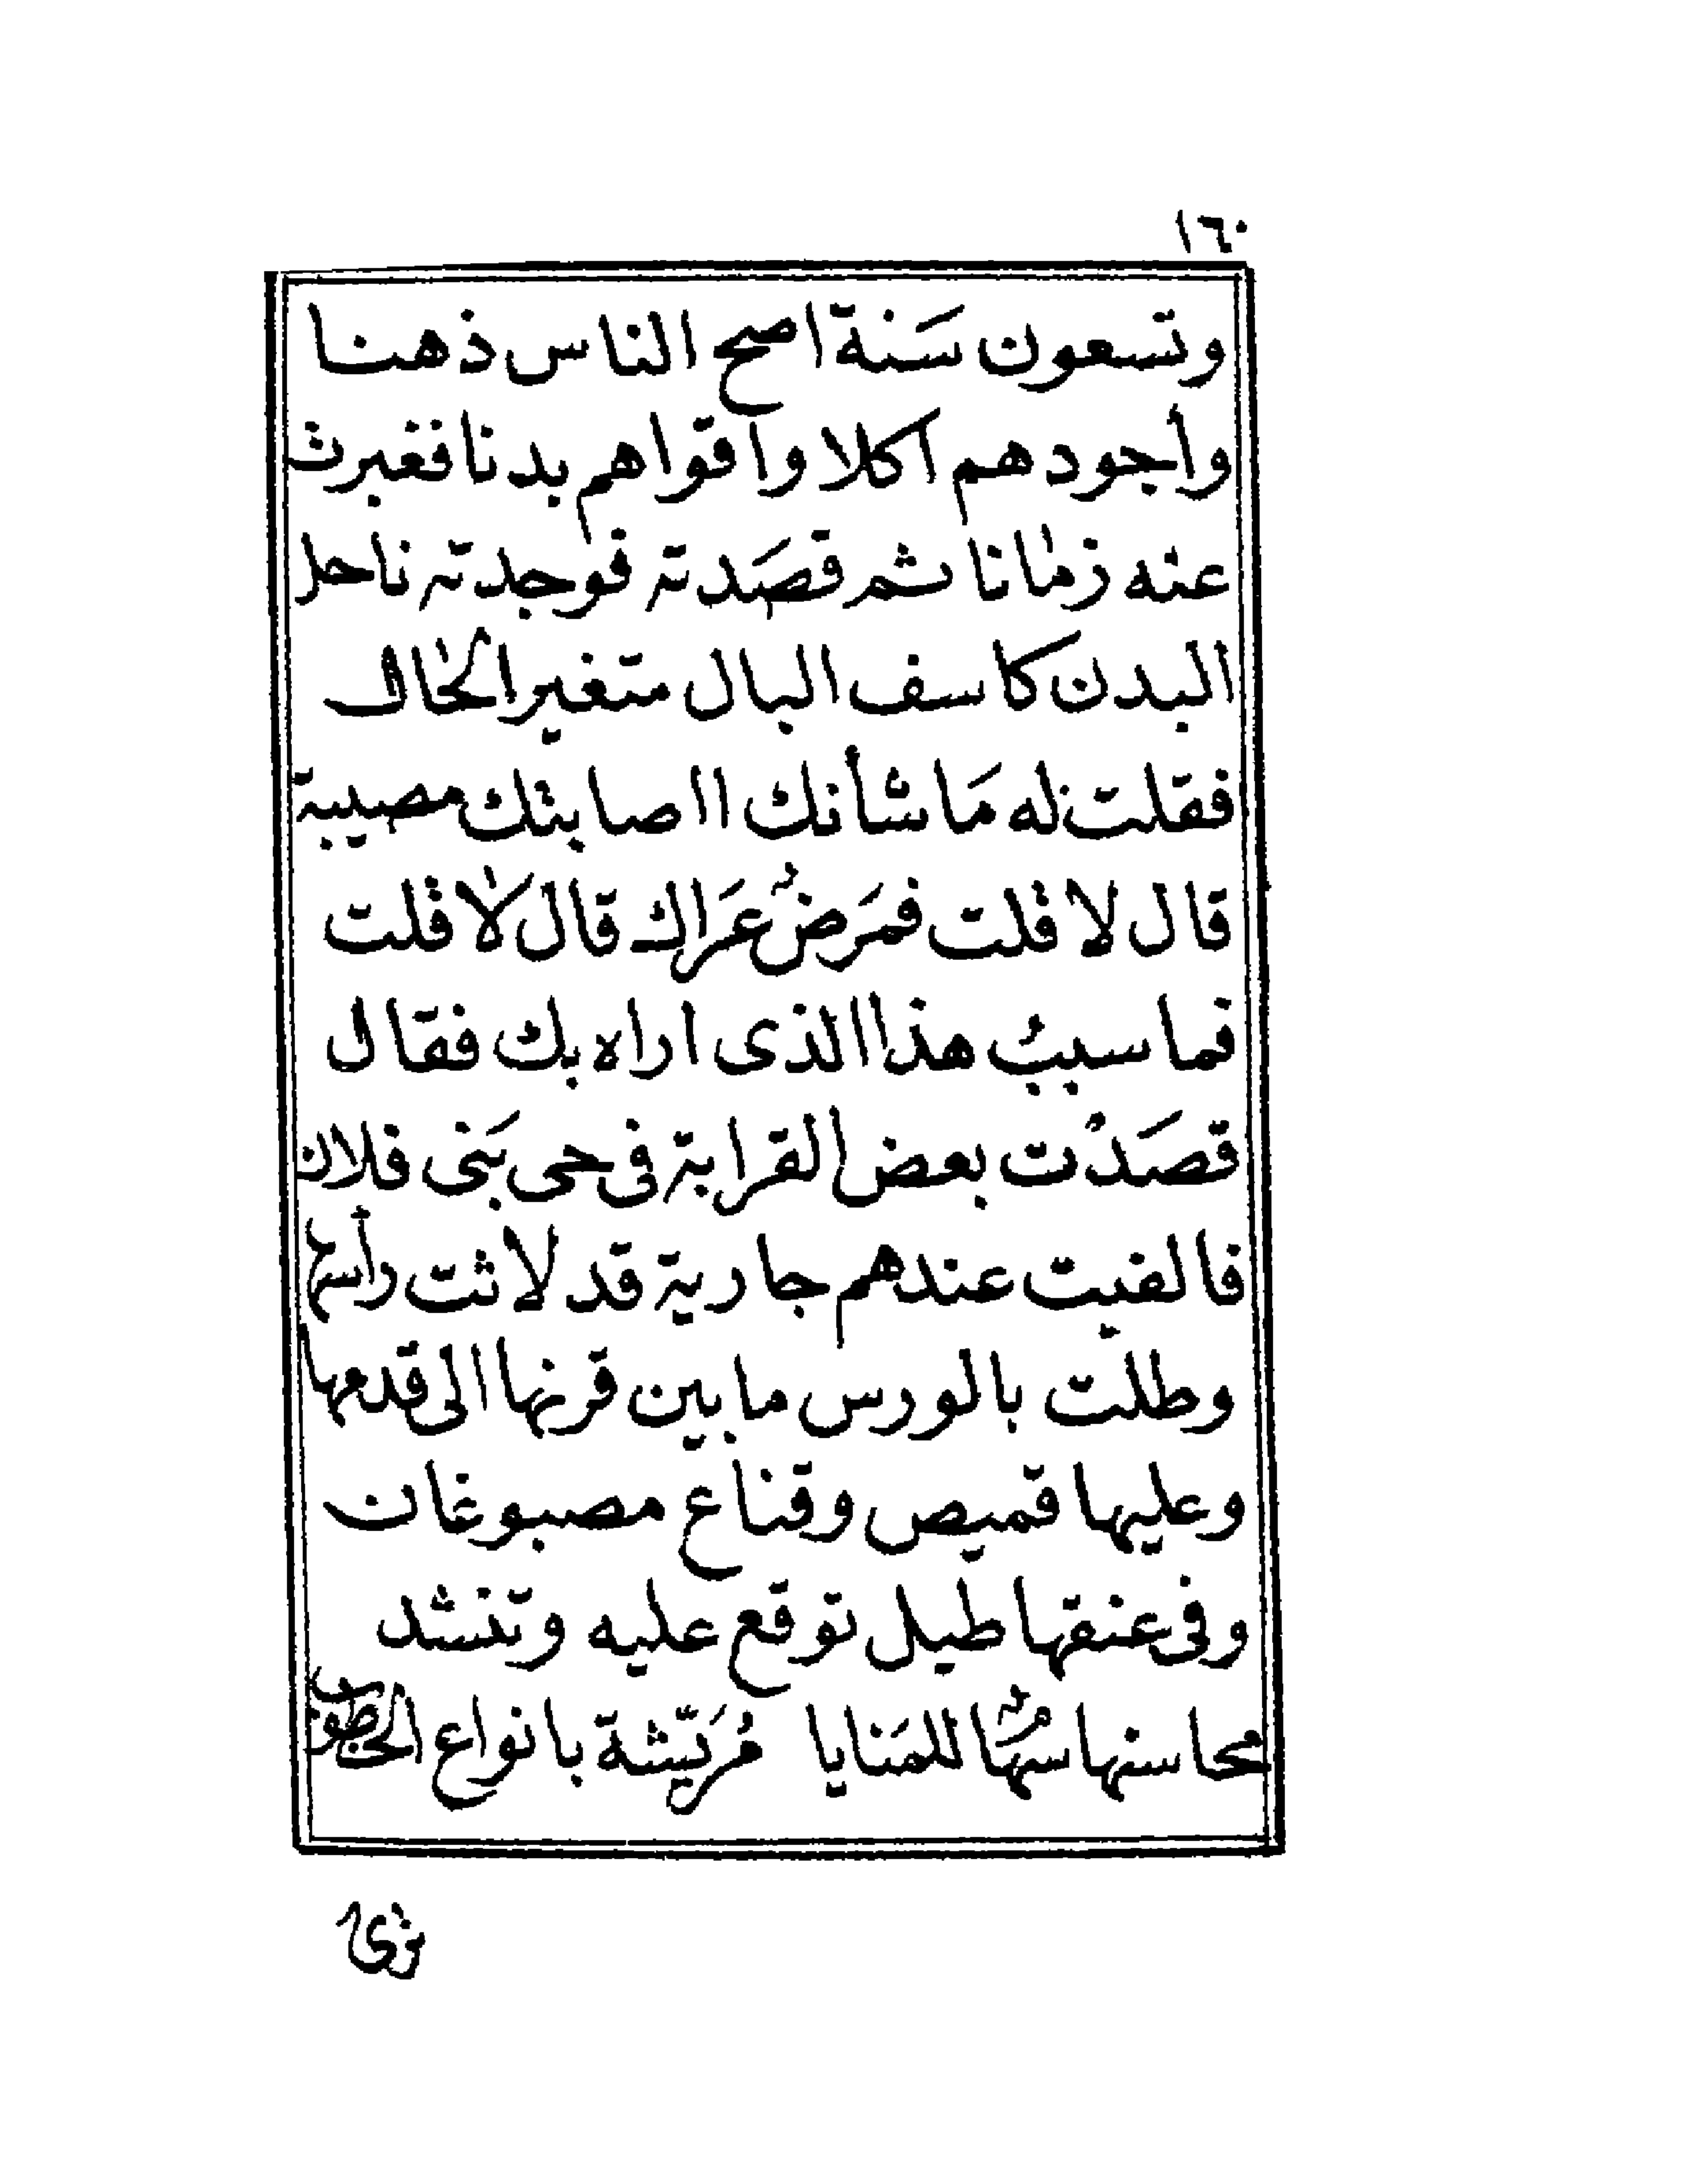 ١٦٠
وتسعون سَنة اصح الناس ذهنا
وأجودهم اكلا واقواهم بدنا فغبرت
عنه زمانا ثم قصَدته فوجدته ناحل
البدن كاسف البال متغير الحال
فقلت له مَا شأنك ااصابتك مصيبة
قال لا قلت فمَرَضٌ عَرَاك قال لا قلت
فما سببُ هذا الذى اراه بك فقال
قصَدْت بعض القرابة فى حى بَنى فلان
فالفيت عندهم جارية قد لاثت رأسها
وطلت بالورس ما بين قرنها الى قدمها
وعليها قميص وقناع مصبوغان
وفى عنقها طبل توقع عليه وتنشد
محاسنها سهَامٌ للمَنايا مُرَيّشة بانواع الخطوب